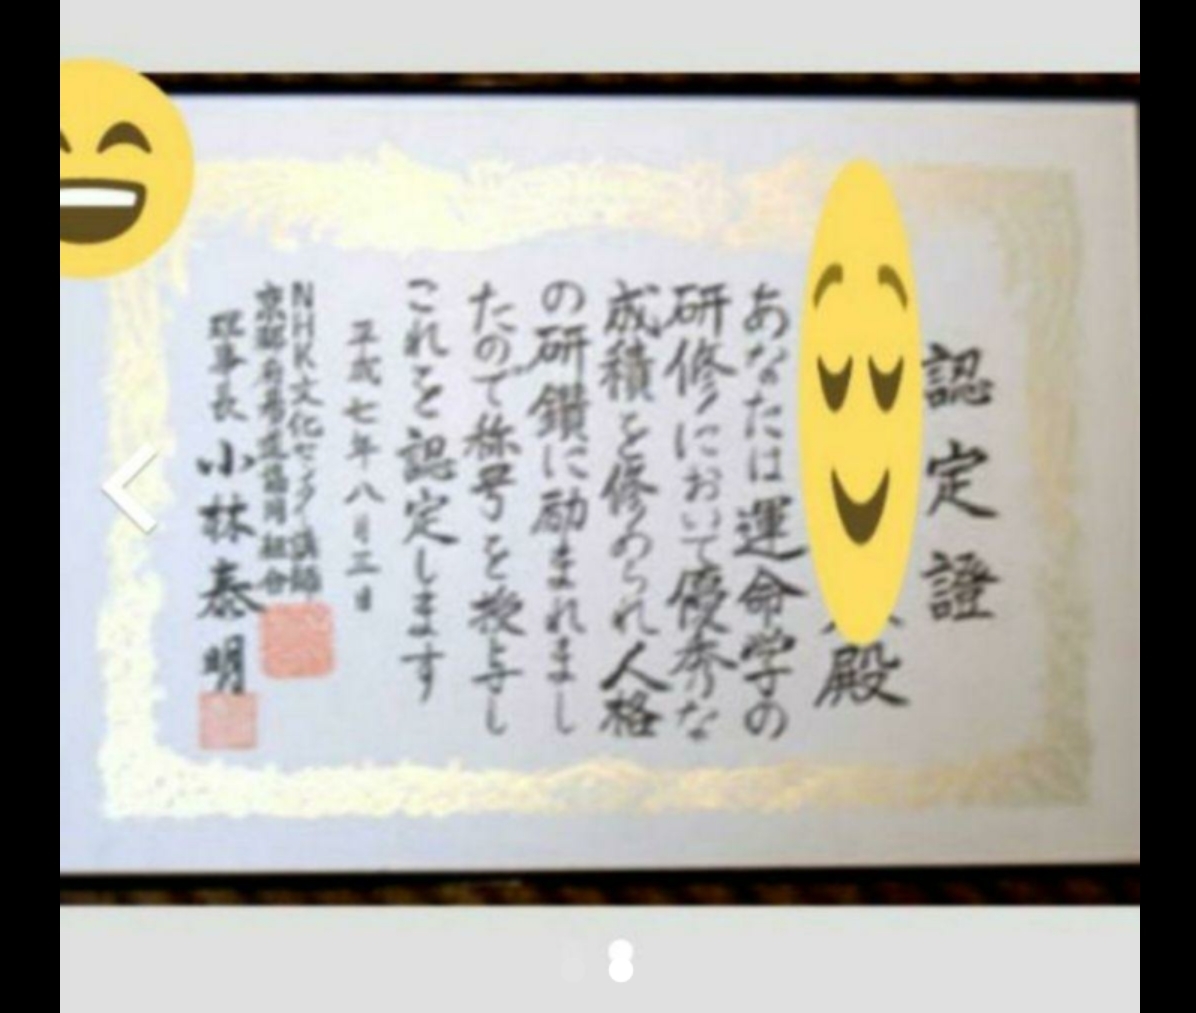 認定證
殿
あなたは運命学の
研修において優秀な
成績を修められ人格
の研鑽に励まれまし
たので称号を授与し
これを認定します
平成七年八月三日
NHK文化センター講師
京都府易道協同組合
理事長 小林泰明